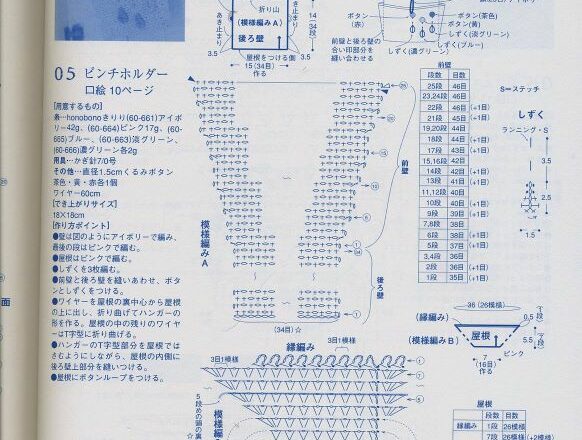 折り山
(模様編みA)
後ろ壁
あき止まり
あき止まり
14
(34段)
3.5
3.5
15(34目)
作る
屋根をつける側
ボタン
(赤)
ボタン(茶色)
ボタン(黄)
しずく(淡グリーン)
しずく(ブルー)
しずく(濃グリーン)
前壁と後ろ壁の
合い印部分を
縫い合わせる
05 ピンチホルダー
口絵10ページ
[用意するもの]
糸…honobonoきりり(60-661)アイボ
リー42g、(60-664)ピンク17g、(60-
665)ブルー、(60-663)淡グリーン、
(60-666)濃グリーン各2g
用具…かぎ針7/0号
その他…直径1.5cmくるみボタン
茶色・黄・赤各1個
ワイヤー60cm
[でき上がりサイズ]
18×18cm
[作り方ポイント]
●壁は図のようにアイボリーで編み、
最後の段はピンクで編む。
●屋根はピンクで編む。
●しずくを3枚編む。
●前壁と後ろ壁を縫いあわせ、ボタ
ンとしずくをつける。
●ワイヤーを屋根の裏中心から屋根
の上に出し、折り曲げてハンガーの
形を作る。屋根の中の残りのワイヤ
ーはT字型に折り曲げる。
●ハンガーのT字型部分を屋根では
さむようにしながら、屋根の内側に
後ろ壁上部分を縫いつける。
●屋根にボタンループをつける。
模様編みA
前壁
後ろ壁
(34目)☆
前壁
段数 目数
25段 46目
23,24段 46目
22段 46目 (+1目)
21段 45目 (+1目)
19,20段 44目
18段 44目 (+1目)
17段 43目 (+1目)
15,16段 42目
14段 42目 (+1目)
13段 41目 (+1目)
11,12段 40目
10段 40目 (+1目)
9段 39目 (+1目)
7,8段 38目
6段 38目 (+1目)
5段 37目 (+1目)
3,4段 36目
2段 36目 (+1目)
1段 35目 (+1目)
S=ステッチ
しずく
ランニング・S
3.5
2.5
1.5
36(26模様)
(縁編み)
0.5
(模様編みB)
屋根
5.5
7
(16目)
作る
ピンク
縁編み
3目1模様
3目1模様
5段めの頭の裏
屋根
段数 目数
縁編み 1段 26模様
7段 26模様 (+2模様)